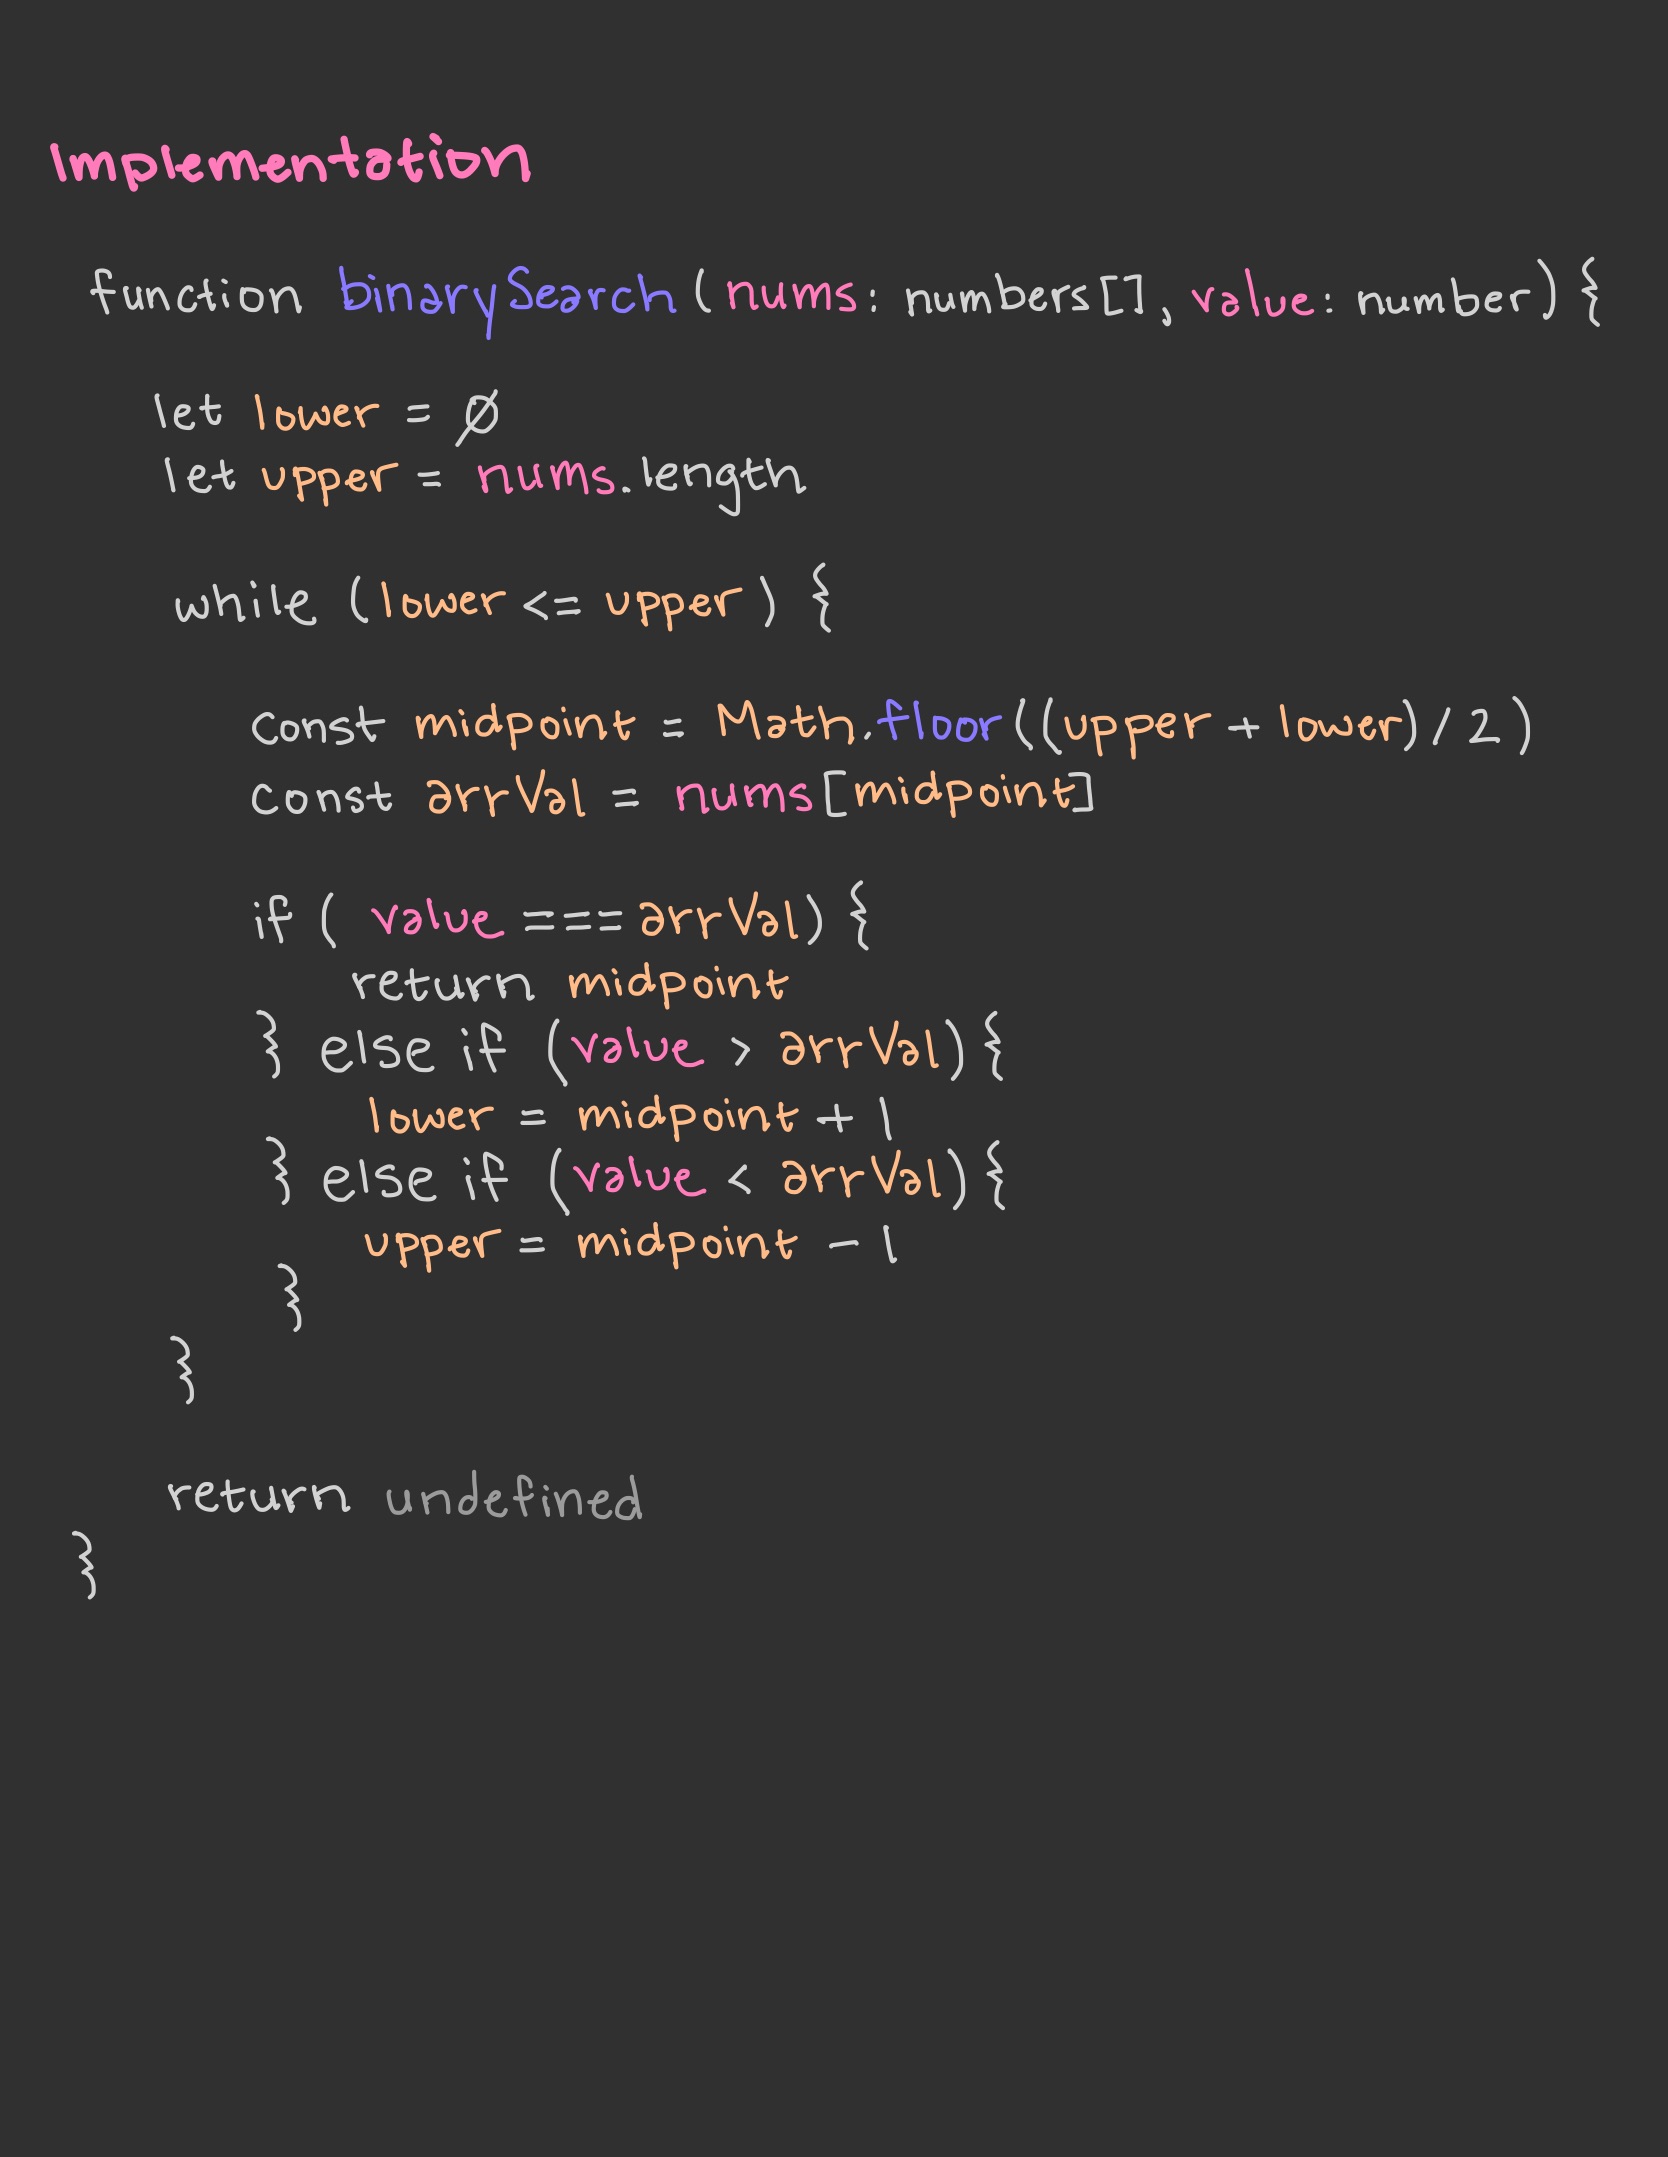 Implementation
function binarySearch(nums: numbers[], value: number){
let lower = 0
let upper = nums.length
while (lower <= upper) {
const midpoint = Math.floor((upper + lower)/2)
const arrVal = nums[midpoint]
if ( value === arrVal) {
return midpoint
} else if (value > arrVal){
lower = midpoint + 1
} else if (value < arrVal){
upper = midpoint - 1
}
}
return undefined
}